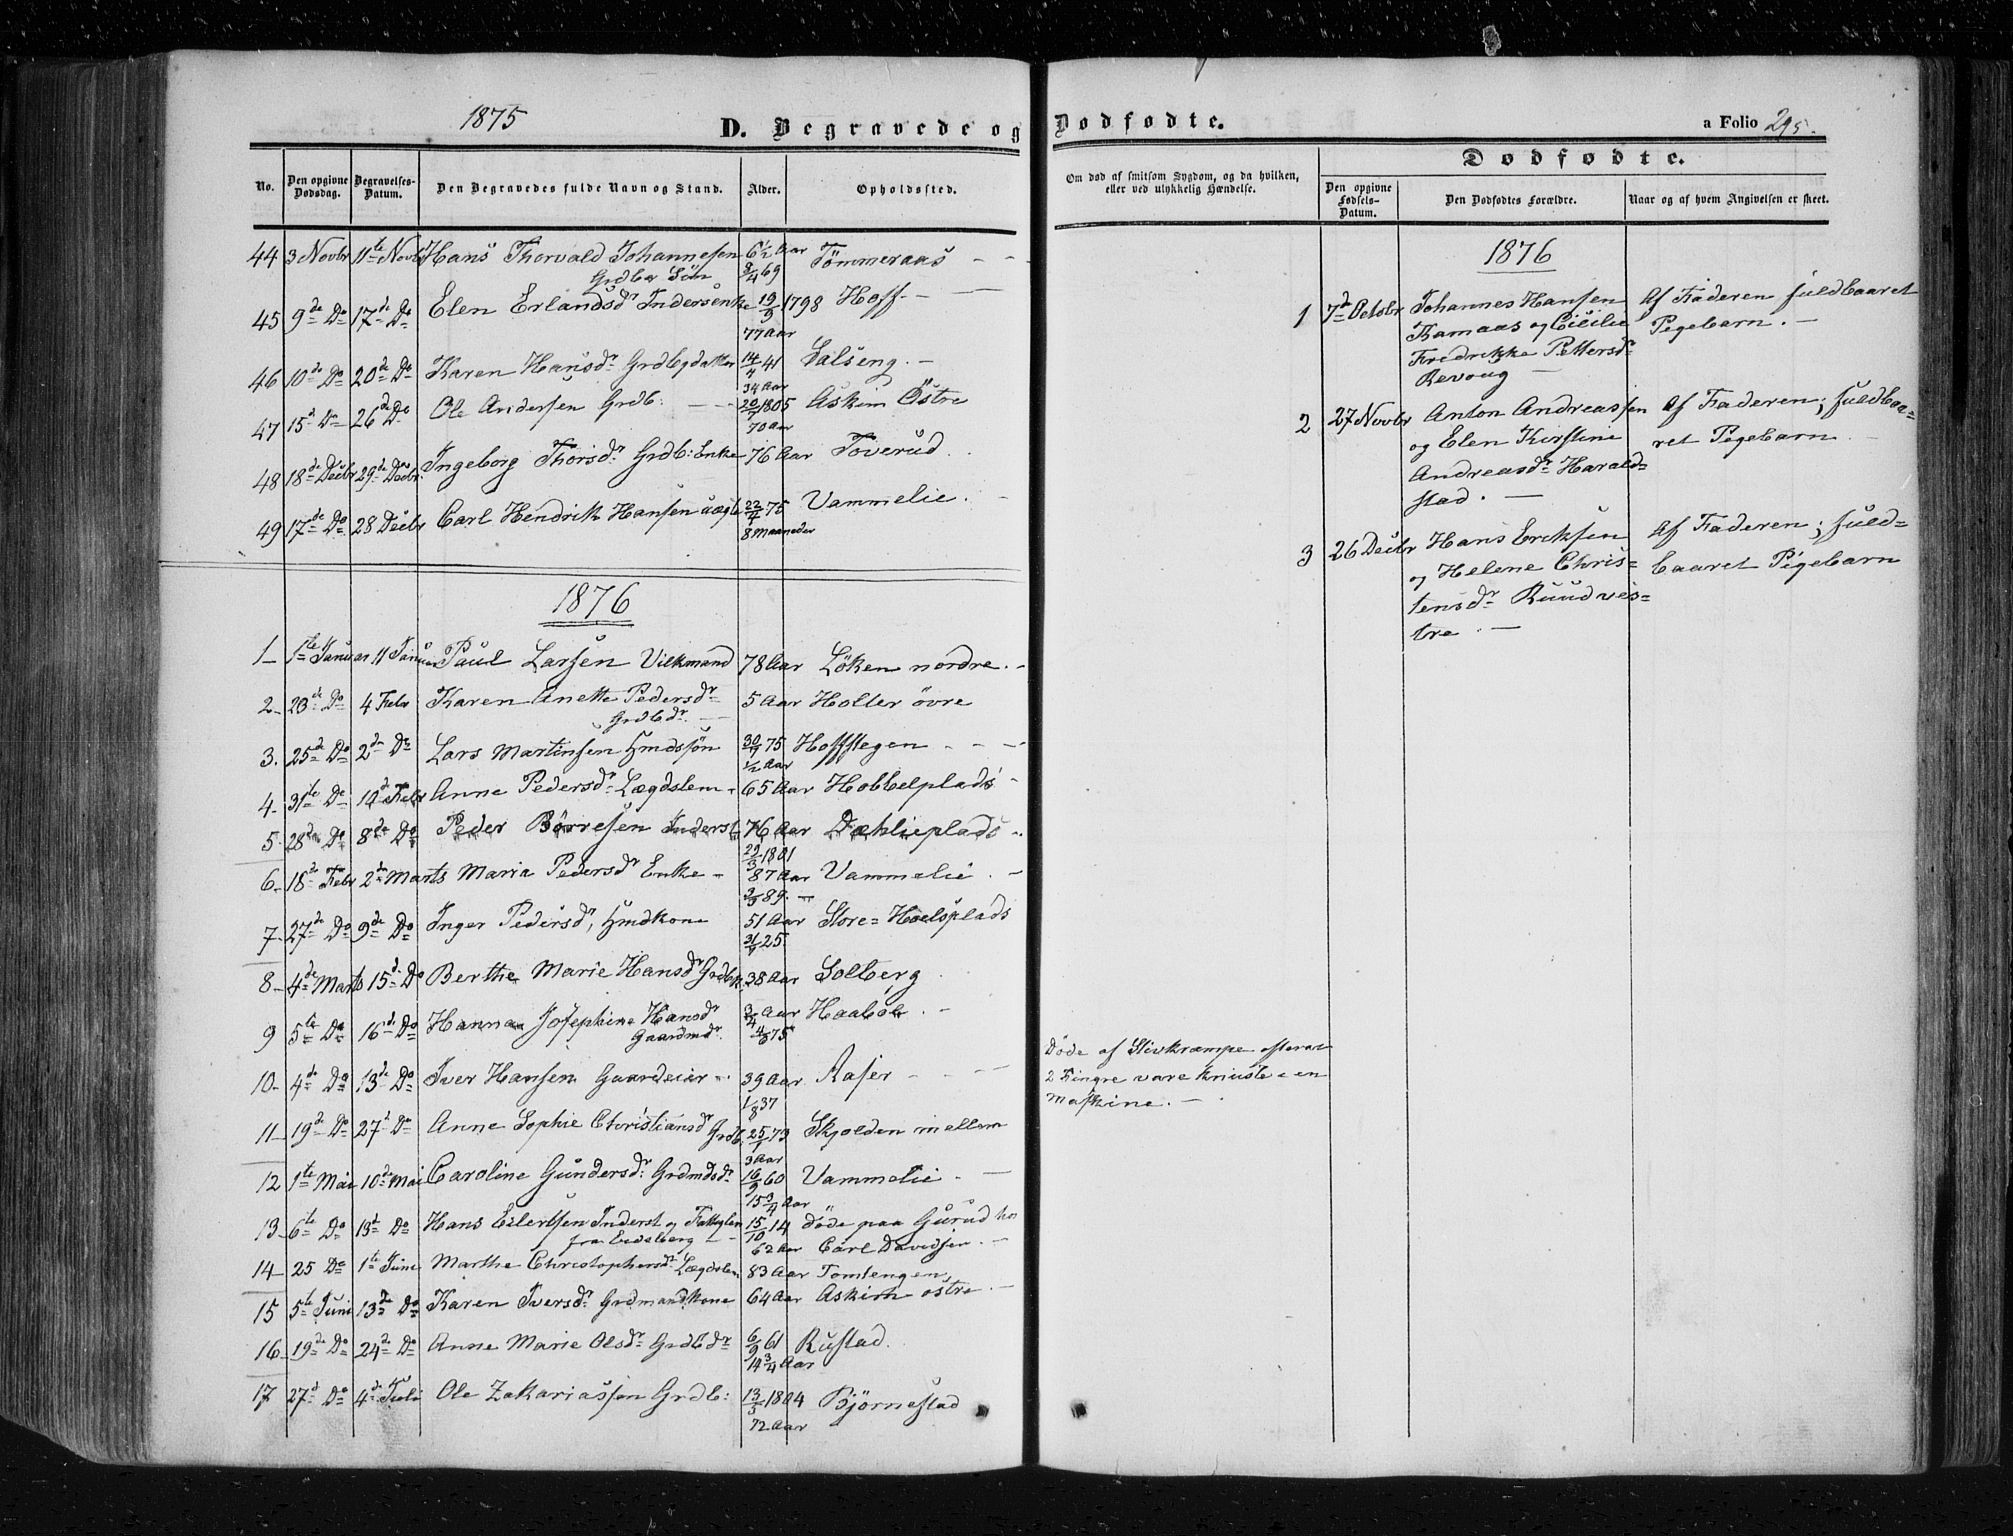 1875
D. Begravede og Dødfødte.
a Folio 295.
No.
Den opgivne Dødsdag.
Begravelses-Datum.
Den Begravedes fulde Navn og Stand.
Alder.
Opholdssted.
Om død af smitsom Sygdom, og da hvilken, eller ved ulykkelig Hændelse.
Dødfødte.
Den opgivne Fødsels-Datum.
Den Dødfødtes Forældre.
Naar og af hvem Angivelsen er skeet.
44 3 Novbr 11te Novbr Hans Thorvald Johannesen 6½ Aar Tømmeraas
Grdbr Søn 3/4 69
45 9de Do 17de Do Elen Erlandsdr Indersenke 19/3 1798 Hoff
77 Aar
46 10de Do 20de Do Karen Hansdr Grdbgdatter 14/4 41 Salseng.
34 Aar
47 15d Do 26de Do Ole Andersen Grdb: 20/7 1805 Askim Østre
70 Aar
48 18de Decbr 29de Decbr. Ingeborg Thorsdr Grdb: Enke 76 Aar Toverud
49 17de Do 28 Decbr Carl Hendrik Hansen uægte 22/4 75 Vammelie.
8 maaneder
1876
1 1te Januar 11 Januar Paul Larsen Vilkmand 78 Aar Løken nordre.
2 23de Do 4 Febr Karen Anette Pedersdr 5 Aar Holter øvre
Grdbdr.
3. 25de Do 2de Do Lars Martinsen Hmdssøn 30/7 75 Hoffslegen
½ Aar
4 31te Do 10de Febr Anne Pedersdr Lægdslem 65 Aar Hobbelplads
5 28de Do 8de Do Peder Börresen Inderst 76 Aar Dæhlieplads
29/3 1801
6 18de Febr 2de Marts Maria Pedersdr Enke 87 Aar Vammelie.
2/3 89.
7 27de Do 9de Do Inger Pedersdr, Hmdkone 51 Aar Store=Hoelsplads
31/7 25
8 4de Marts 15d Do Berthe Marie Hansdr Grdbk. 38 Aar Solberg
9 5te Do 16d Do Hanna Josephine Hansdr 3/4 Aar Haabøl
Gaardmdr. 4/8 75
10 4de Do 13de Do Iver Hansen Gaardeier 39 Aar Raser
1/8 37
Døde af Stivkrampe efterat
2 Fingre vare knuste i en
Maskine.
11 19de Do 27d Do Anne Sophie Christiansdr Grdb: 25/1 73 Skjolden mellem
3 Aar
12 1te Mai 10de Mai Caroline Gundersdr Grdmdsdr 16/9 60 Vammelie.
15¾ Aar
13 6te Do 13d Do Hans Eilertsen Inderst og Fattiglem 15/10 14 døde paa Gurud hos
fra Eidsberg 62 Aar Carl Davidsen.
14 25 Do 1te Juni Marthe Christophersdr Lægdslem 83 Aar Tomtengen
15 5te Juni 13de Do Karen Iversdr Grdmandkone 64 Aar Askim østre.
16 19de Do 24de Do Anne Marie Olsdr Grdbdr 6/9 61 Rustad.
14¾ Aar
17 27d Do 4de Juli Ole Zakariassen Grdb: 13/3 1804 Bjørnestad
72 Aar
1876
1 7d Octobr Johannes Hansen Af Faderen fuldbaaret
Kamaas og Cicilie Pegebarn.
Fredrikke Pettersdr
Revoug
2 27 Novbr Anton Andreassen Af Faderen; fuldbaa=
og Elen Kirstine ret Pegebarn
Andreasdr Harald=
stad.
3 26 Decbr Hans Eriksen Af Faderen; fuld=
og Helene Chris= baaret Pigebarn
tensdr Ruud ves=
tre.